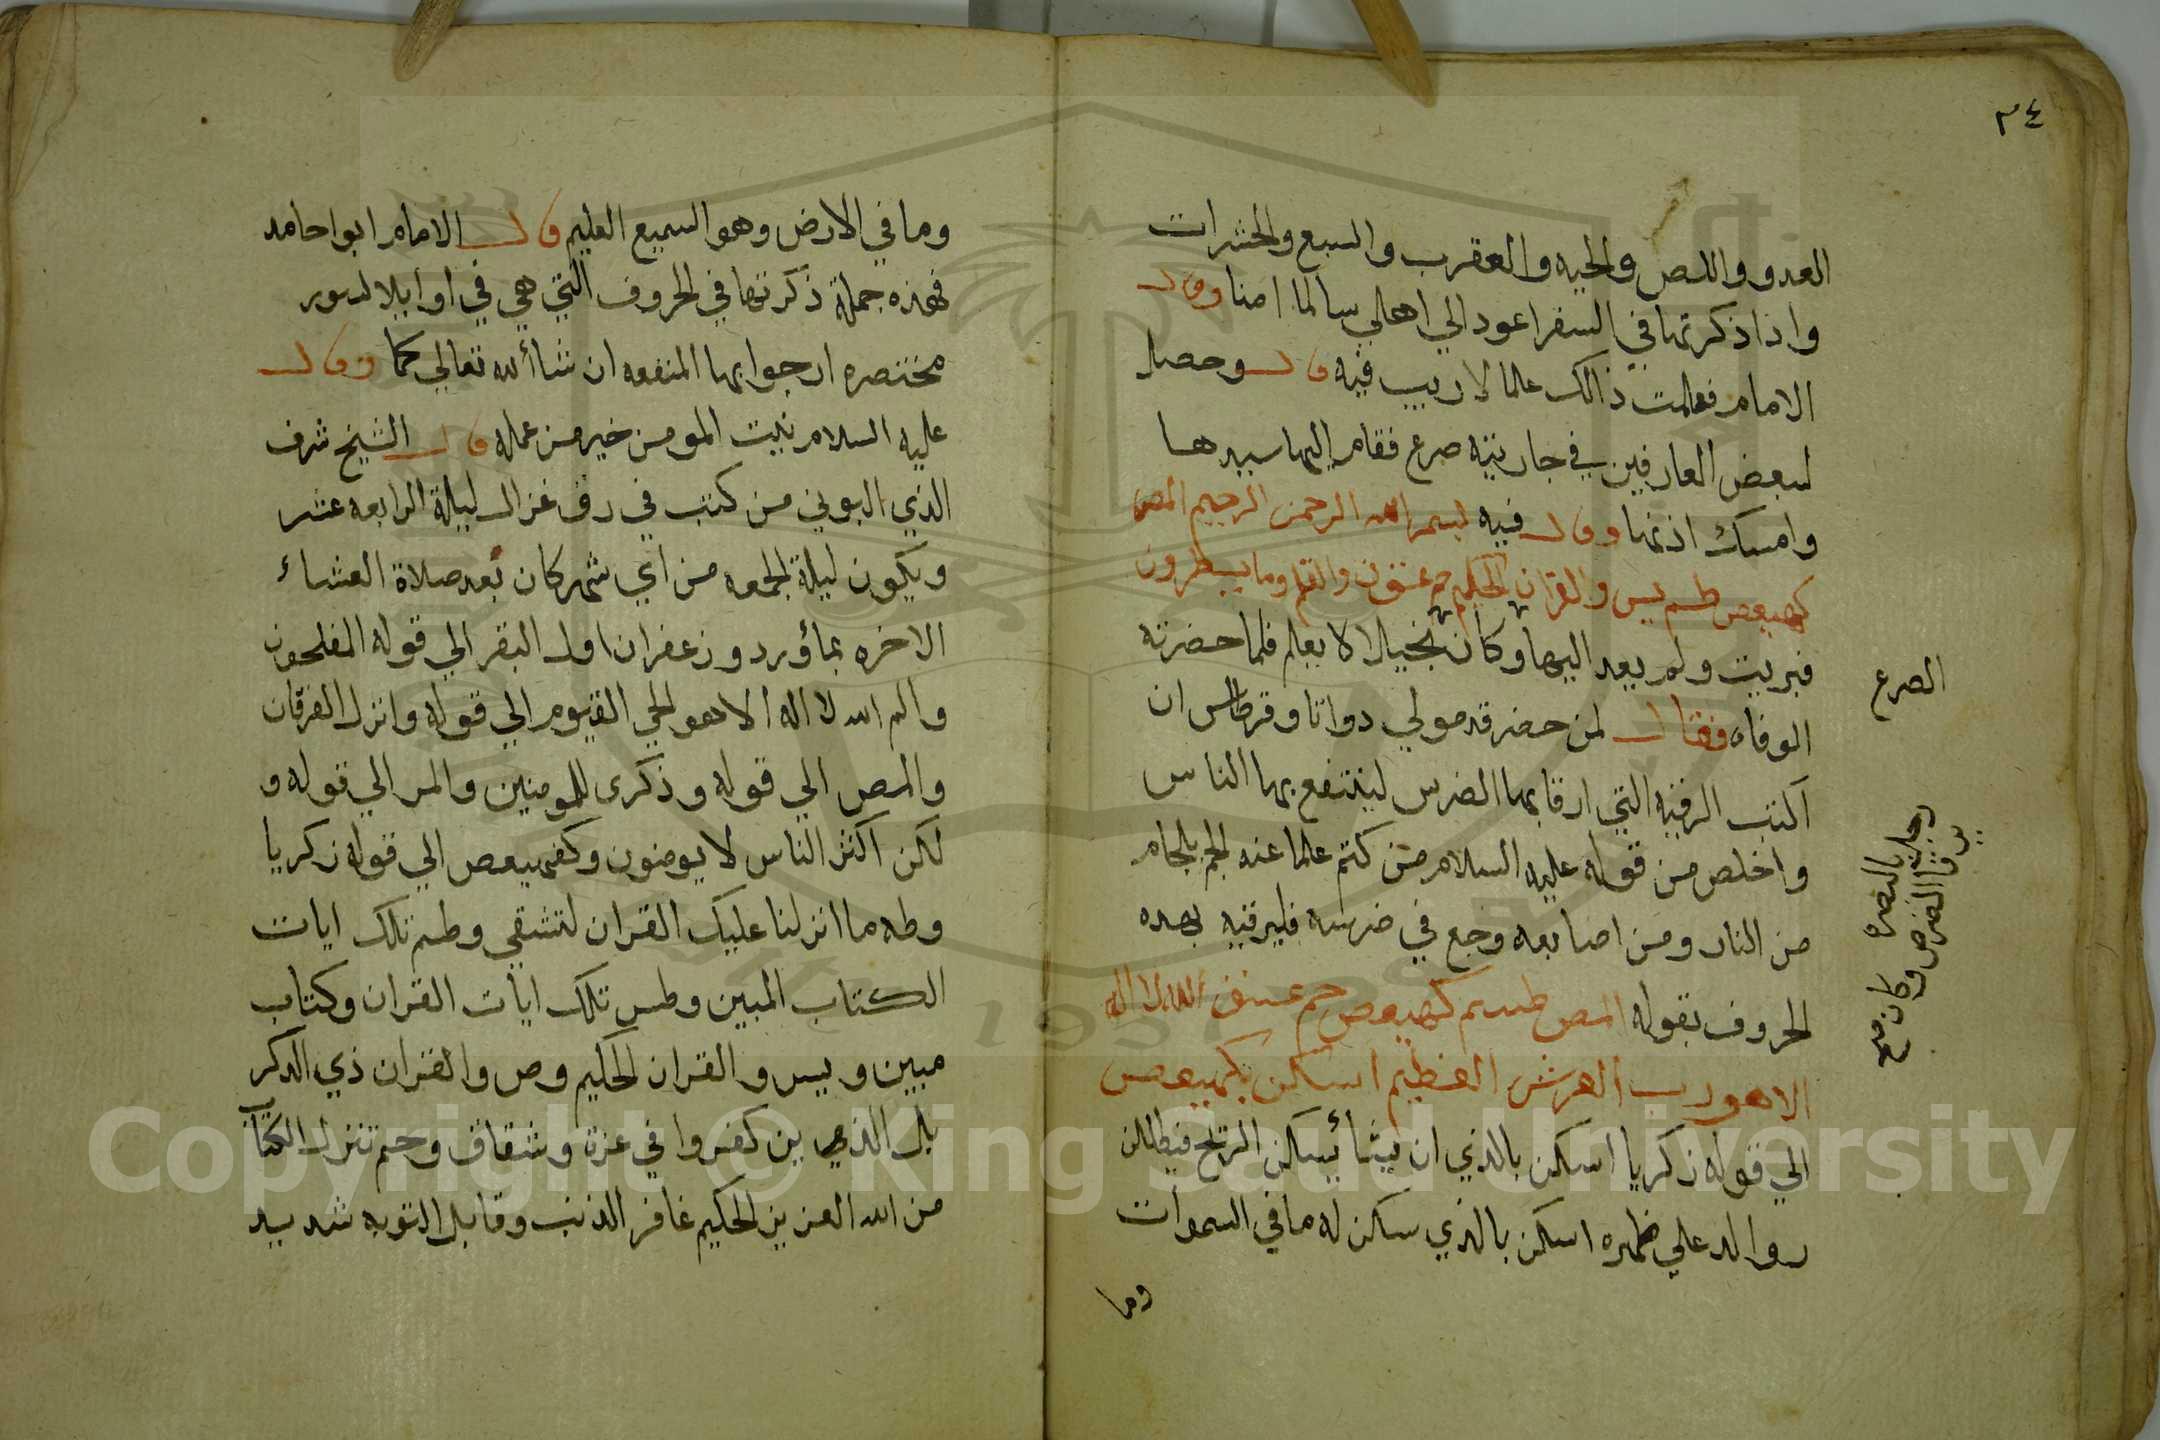 ٣٤
العدو واللص والحيه والعقرب والسبع والحشرات
واذا ذكرتها في السفر اعود الي اهلي سالما امنا وقال
الامام فعلمت ذالك علما لا ريب فيه قال وحصل
لبعض العارفين في جاريته صرع فقام اليها سيدها
وامسك اذنها وقال فيه بسم الله الرحمن الرحيم المص
كهيعص طسم يس والقران الحكيم حم عسق ن والقلم وما يسطرون
فبريت ولم يعد اليها وكان بخيلا لا يعلم فلما حضرته
الوفاه فقال لمن حضر قدمولي دواتا وقرطاس ان
اكتب الرقيه التي ارقا بها الضرس لينتفع بها الناس
واخلص من قوله عليه السلام من كتم علما عنه لجم بلجام
من النار ومن اصابعه وجع في ضرسه فليرقيه بهده
الحروف بقوله المص طسم كهيعص حم عسق الله لا اله
الا هو رب العرش العظيم اسكن بكهيعص
الي قوله زكريا اسكن بالذي ان يشأ يسكن الريح فيظللن
رواكد علي ظهره اسكن بالذي سكن له ما في السموات
وما
الصرع
رجل بالبصره
يرقا الضرس وكان مع
وما في الارض وهو السميع العليم قال الامام ابوا حامد
فهذه جملة ذكرتها في الحروف التي هي في اوايل السور
مختصره ارجوا بها المنفعه ان شاالله تعالي كما وقال
عليه السلام نيت المومن خير من عمله قال الشيخ شرف
الذي البوني من كتب في رق غزال ليلة الرابعه عشر
ويكون ليلة الجمعه من اي شهر كان بعد صلاة العشاء
الاخره بماورد وزعفران اول البقر الي قوله المفلحون
والم الله لا اله الا هو الحي القيوم الي قوله وانزل الفرقان
والمص الي قوله وذكرى للمومنين والمر الي قوله و
لكن اكثر الناس لا يومنون وكهيعص الي قوله زكريا
وطه ما انزلنا عليك القران لتشقي وطسم تلك ايات
الكتاب المبين وطس تلك ايات القران وكتاب
مبين ويس والقران الحكيم وص والقران ذي الدكر
بل الذين كفروا في عزة وشقاق وحم تنزل الكتاب
من الله العزيز الحكيم غافر الذنب وقابل التوبه شديد
Copyright © King Saud University
1957